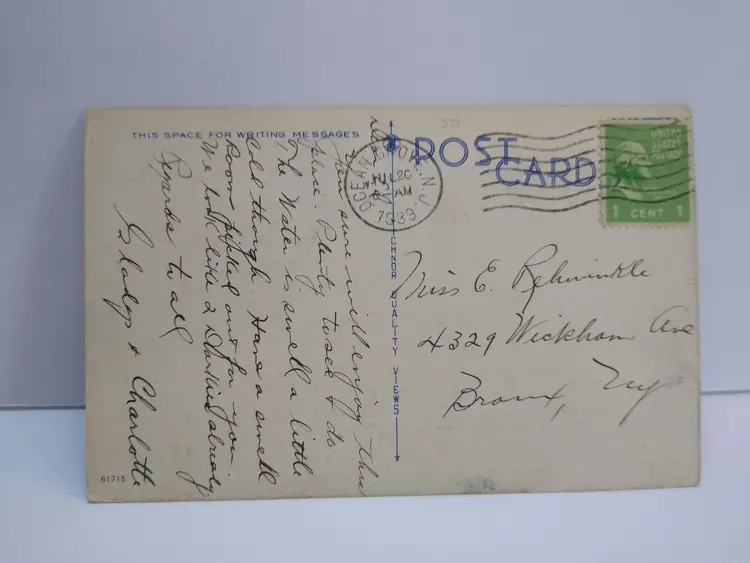 THIS SPACE FOR WRITING MESSAGES
Dear
You sure will enjoy this
place. Plenty to see & do.
The Water is swell a little
cold though. Have a swell
Room picked out for you
We look like 2 Darkies already
Regards to all
Gladys & Charlotte
61715
TICHNOR QUALITY VIEWS
POST
CARD
OCEAN N.J.
JUL 20
AM
1939
UNITED
STATES
POSTAGE
1 CENT 1
Miss E. Rehwinkle
4329 Wickham Ave
Bronx, Ny